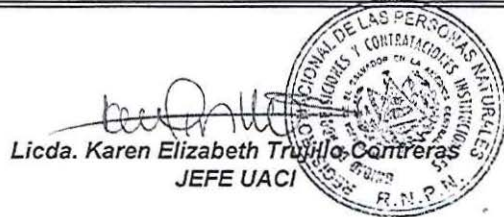 Licda. Karen Elizabeth Trujillo Contreras
JEFE UACI
REGISTRO NACIONAL DE LAS PERSONAS NATURALES
ADQUISICIONES Y CONTRATACIONES
EL SALVADOR EN LA AMERICA CENTRAL
R.N.P.N.